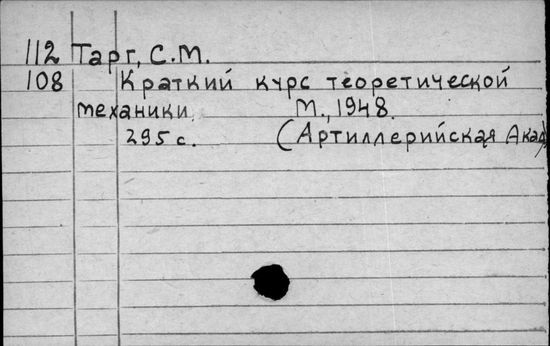 112 Тарг, С.М.
108 Краткий курс теоретической
механики. М., 1948.
295 с. (Артиллерийская Акад)